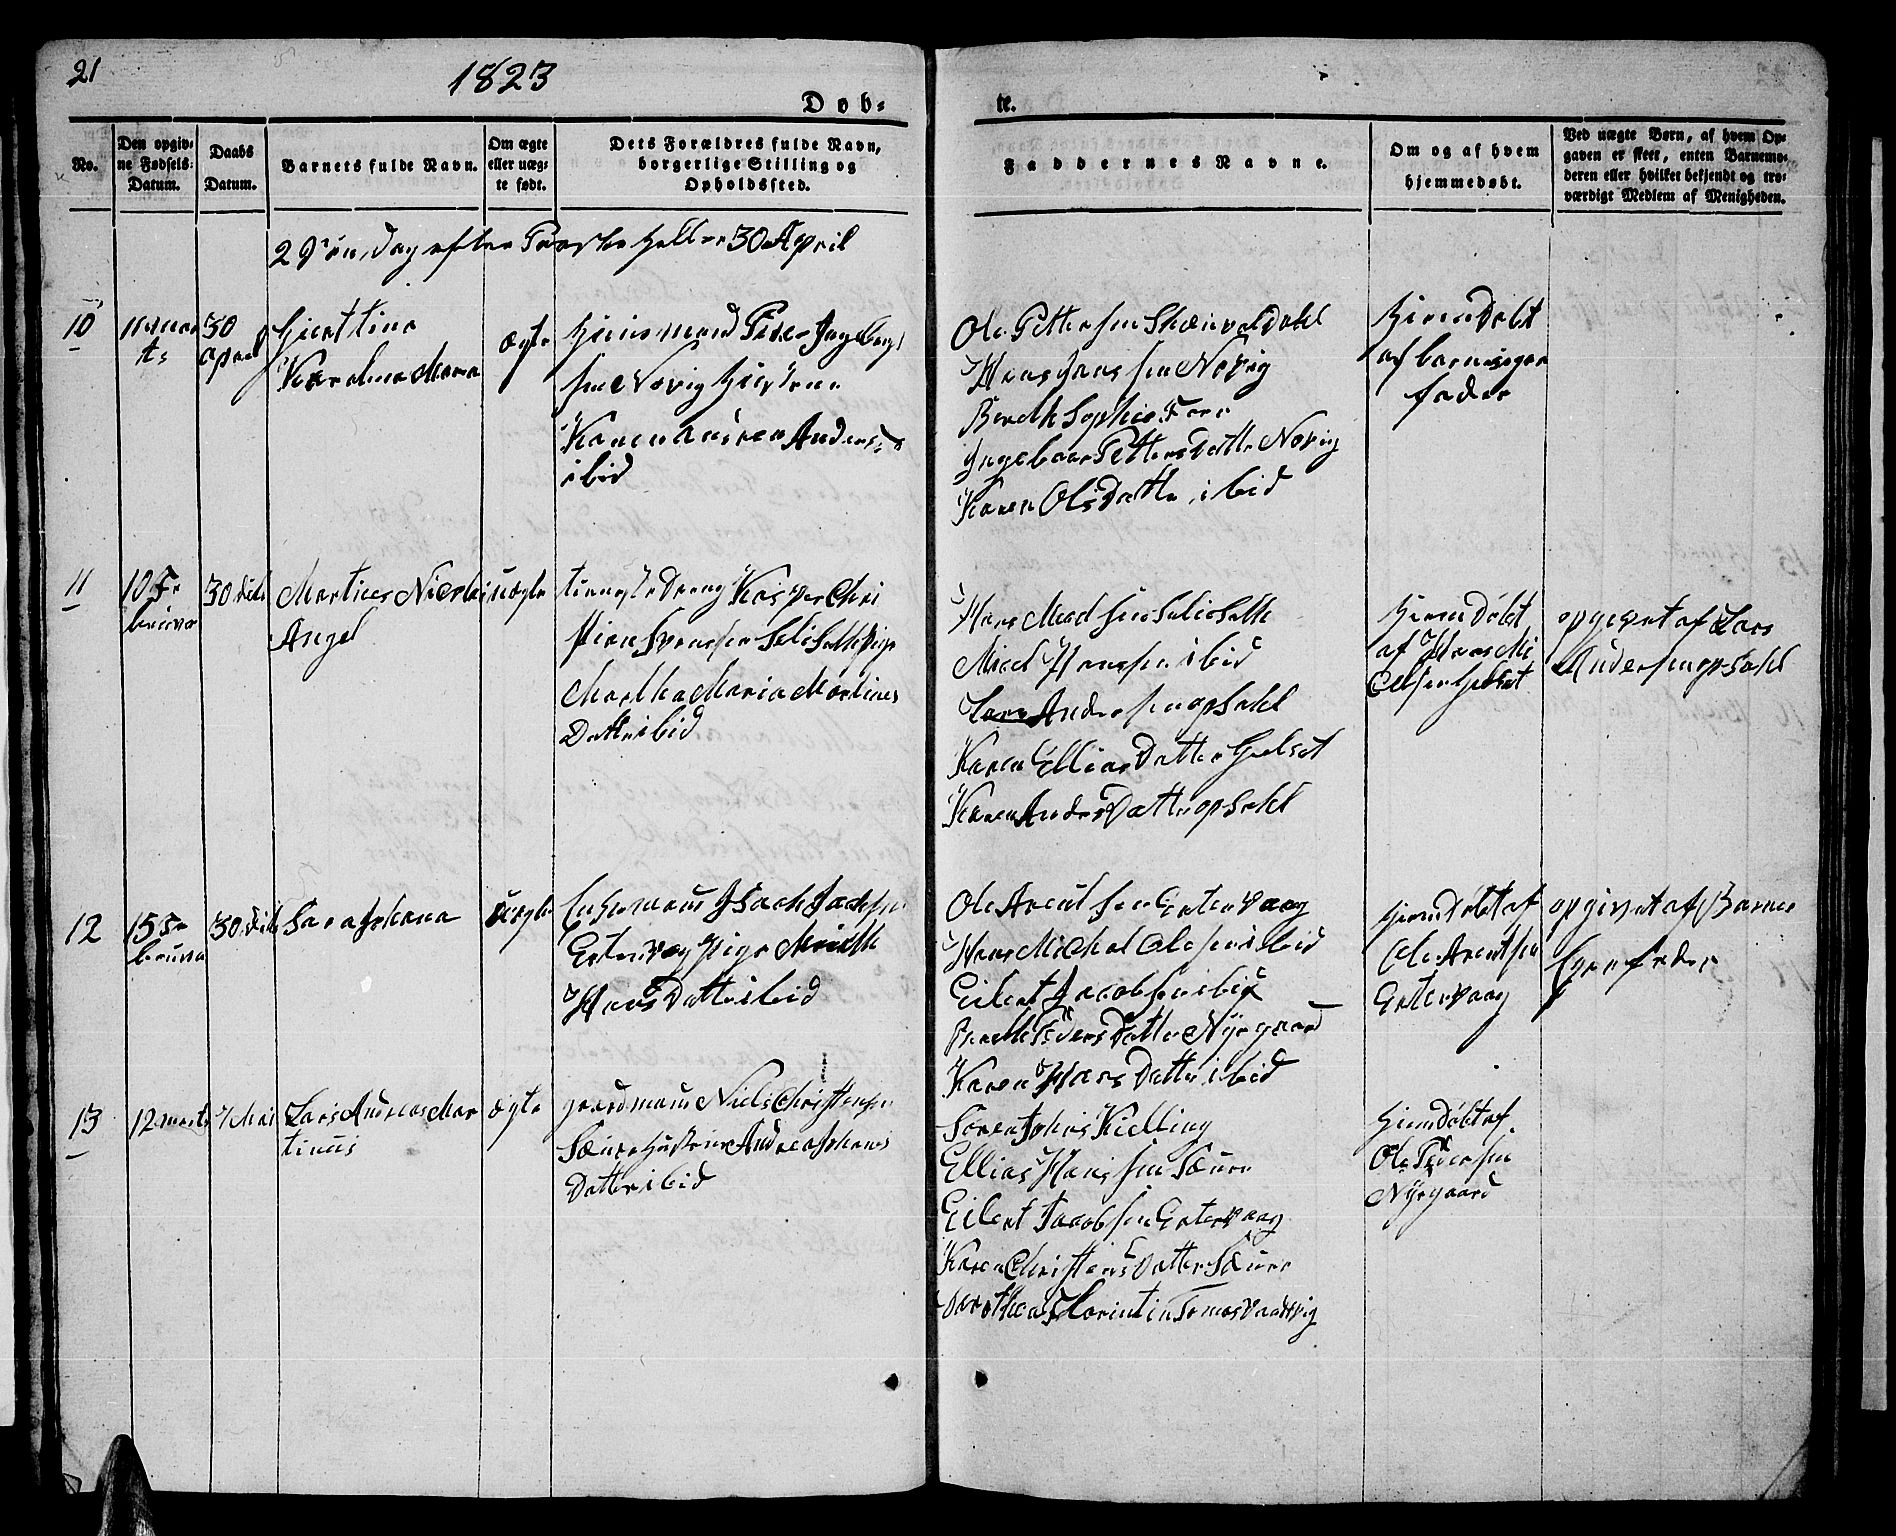 21
1823
Døb-
te.
No.
Den opgiv-
ne Fødsels-
Datum.
Daabs
Datum.
Barnets fulde Navn.
Om ægte
eller uæg-
te født.
Dets Forældres fulde Navn,
borgerlige Stilling og
Opholdssted.
Faddernes Navne.
Om og af hvem
hjemmedøbt.
Ved uægte Børn, af hvem Op-
gaven er skeer, enten Barnemo-
deren eller hvilket bekjendt og tro-
værdigt Medlem af Menigheden.
2 Søndag efter Paaske 30 April
10
11 mar
ts
30
april
Karolina Maria
ægte
Huusmand Peder Ingebrigt
sen Novig Hustrue
Karen Anders
ibid
Ole Pettersen
Hans Hansen Novig
Bereth Sophie
Ingebaar Petters Datter Novig
Karen Ols Datter ibid
Hiemdøbt
af barnets egen
fader
11
10 Fe
bruva
30 dito
Martines Nicolai
Angel
uægte
tieneste Dreng Kasper Chri
stian Svensen Pige
Martha Maria Martines
Datter ibid
Hans Madsen
Mad Hansen ibid
Lars Andersen opsahl
Karen Ellias Datter
Karen Anders Datter opsahl
Hiemdøbt
af Hans Mi
opgivet af Lars
Andersen opsahl
12
15 Fe
bruva
30 dito
Sara Johana
uægte
Ungemand Isach Jachsen
Entervaag Pige
Hans Datter ibid
Ole Arentsen Entervaag
Hans Michal Olesen ibid
Eilert Jacobsen ibid
Bereth Peders Datter Nygaard
Karen Hans Datter ibid
Hiemdøbt af
Ole Arentsen
Entervaag
opgivet af Barnes
fader
13
12 marts
7 Mai
Lars Andreas Mar
tinus
ægte
gaardmand Niels Christensen
Sæure Hustrue Andrea Johanes
Datter ibid
Søren Johns Kielling
Ellias Hansen Sæure
Eilert Jacobsen Entervaag
Karen Christens Datter Sæure
Hiemdøbt af
Ole Pedersen
Nygaard